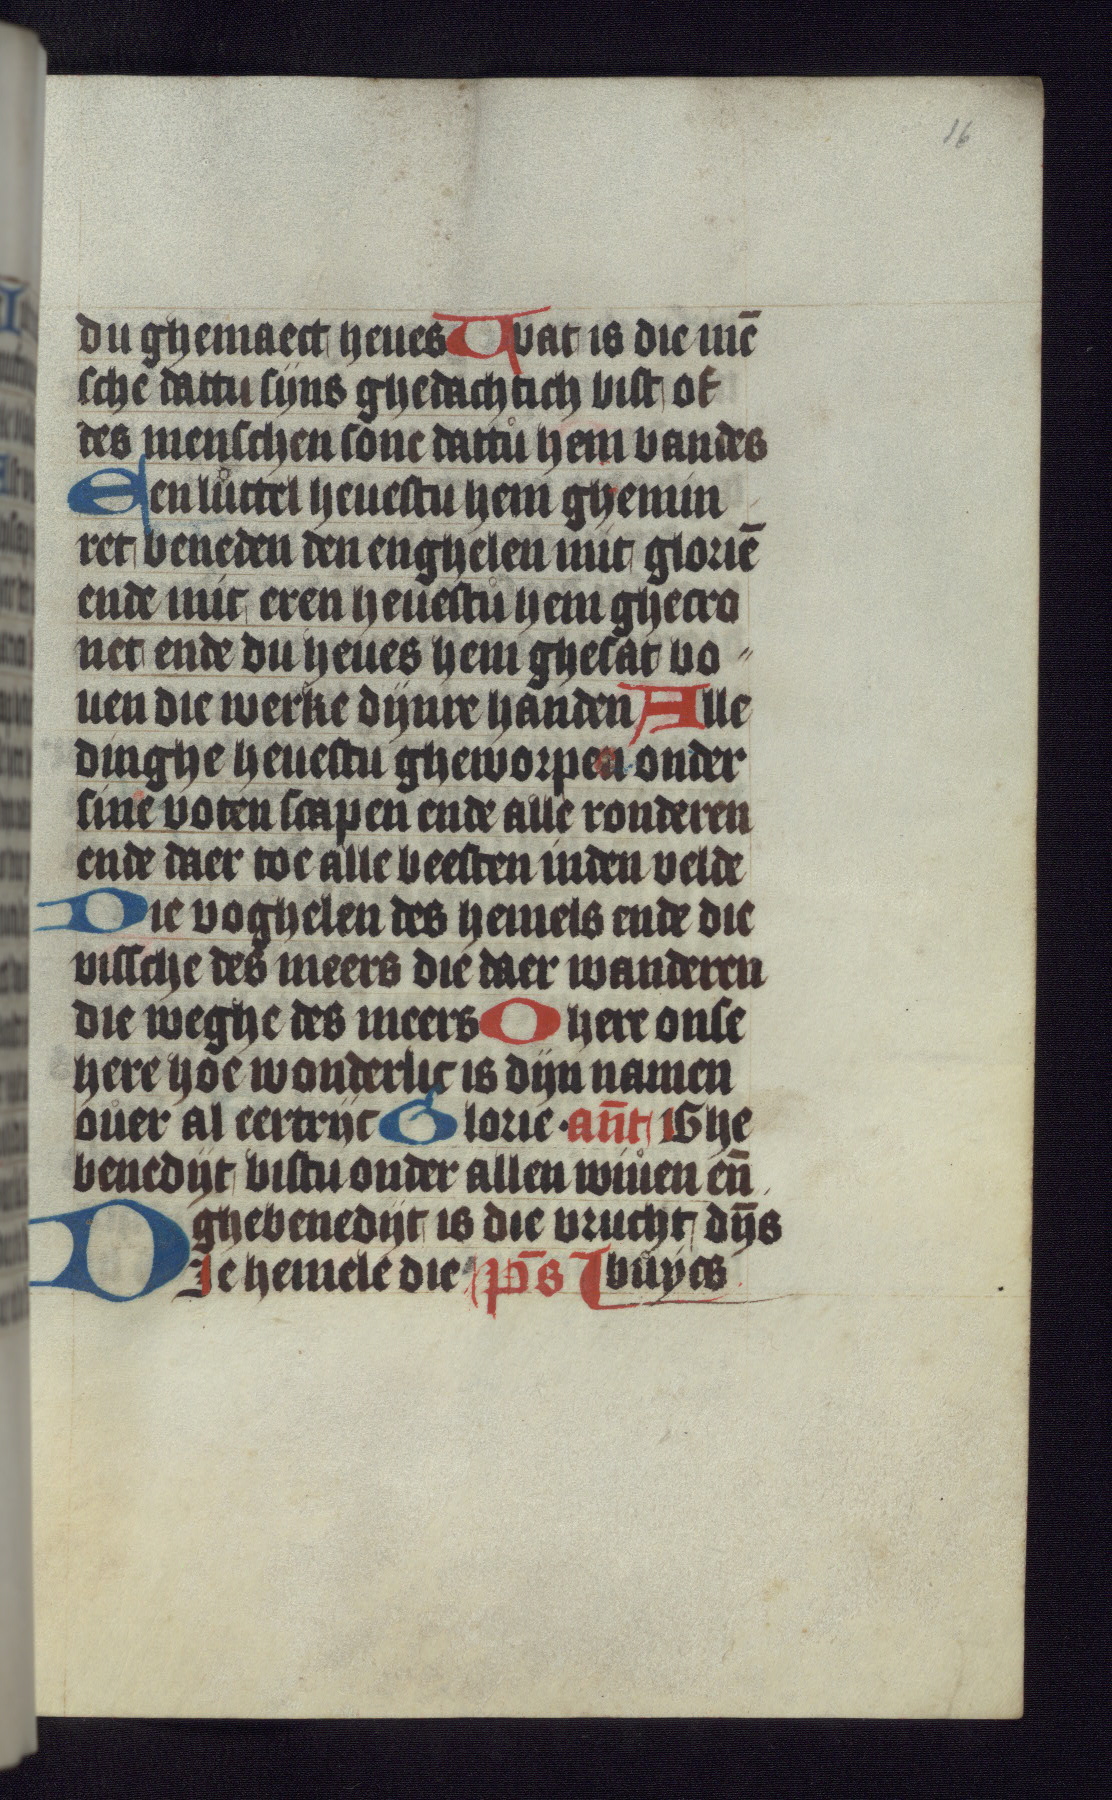 16
du ghemaect heues Wat is die mē
sche dattu sijns ghedachtich bist of
des menschen sone dattu hem vandes
Een luttel heuestu hem ghemin
ret beneden den enghelen mit gloriē
ende mit eren heuestu hem ghecro
net ende du heues hem ghesat bo〃
uen die werke dijnre handen Alle
dinghe heuestu gheworpen onder
sine voten scapen ende alle ronderen
ende daer toe alle beesten inden velde
Die voghelen des hemels ende die
vissche des meers die daer wanderen
die weghe des meers O here onse
here hoe wonderlic is dijn namen
ouer al eertrijc Glorie · an̄t Ghe
benedijt bistu onder allen wiuen en̄
ghebenedijt is die vrucht dījs
Die hemele die p̄s buyics